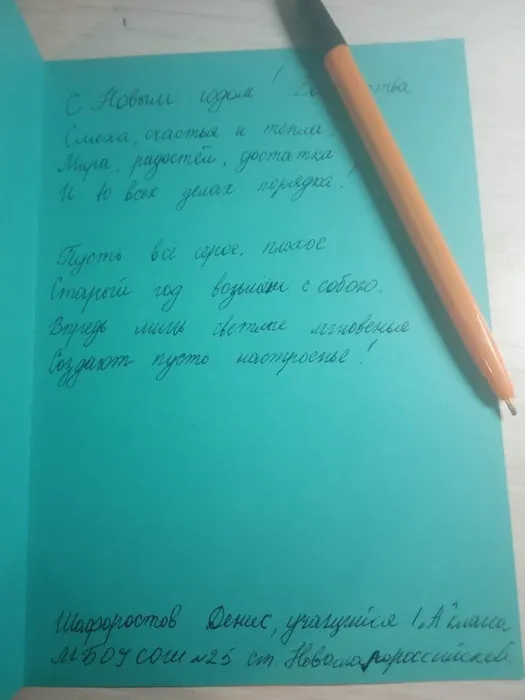 С Новым годом!
Смеха, счастья и тепла,
Мира, радостей, достатка
И во всех делах порядка!
Пусть все серое, плохое
Старый год возьмет с собою.
Впредь лишь светлые мгновенья
Создают пусть настроенье!
Шафоростов Денис, учащийся 1 "А" класса
МБОУ СОШ №25 ст. Новомалороссийской